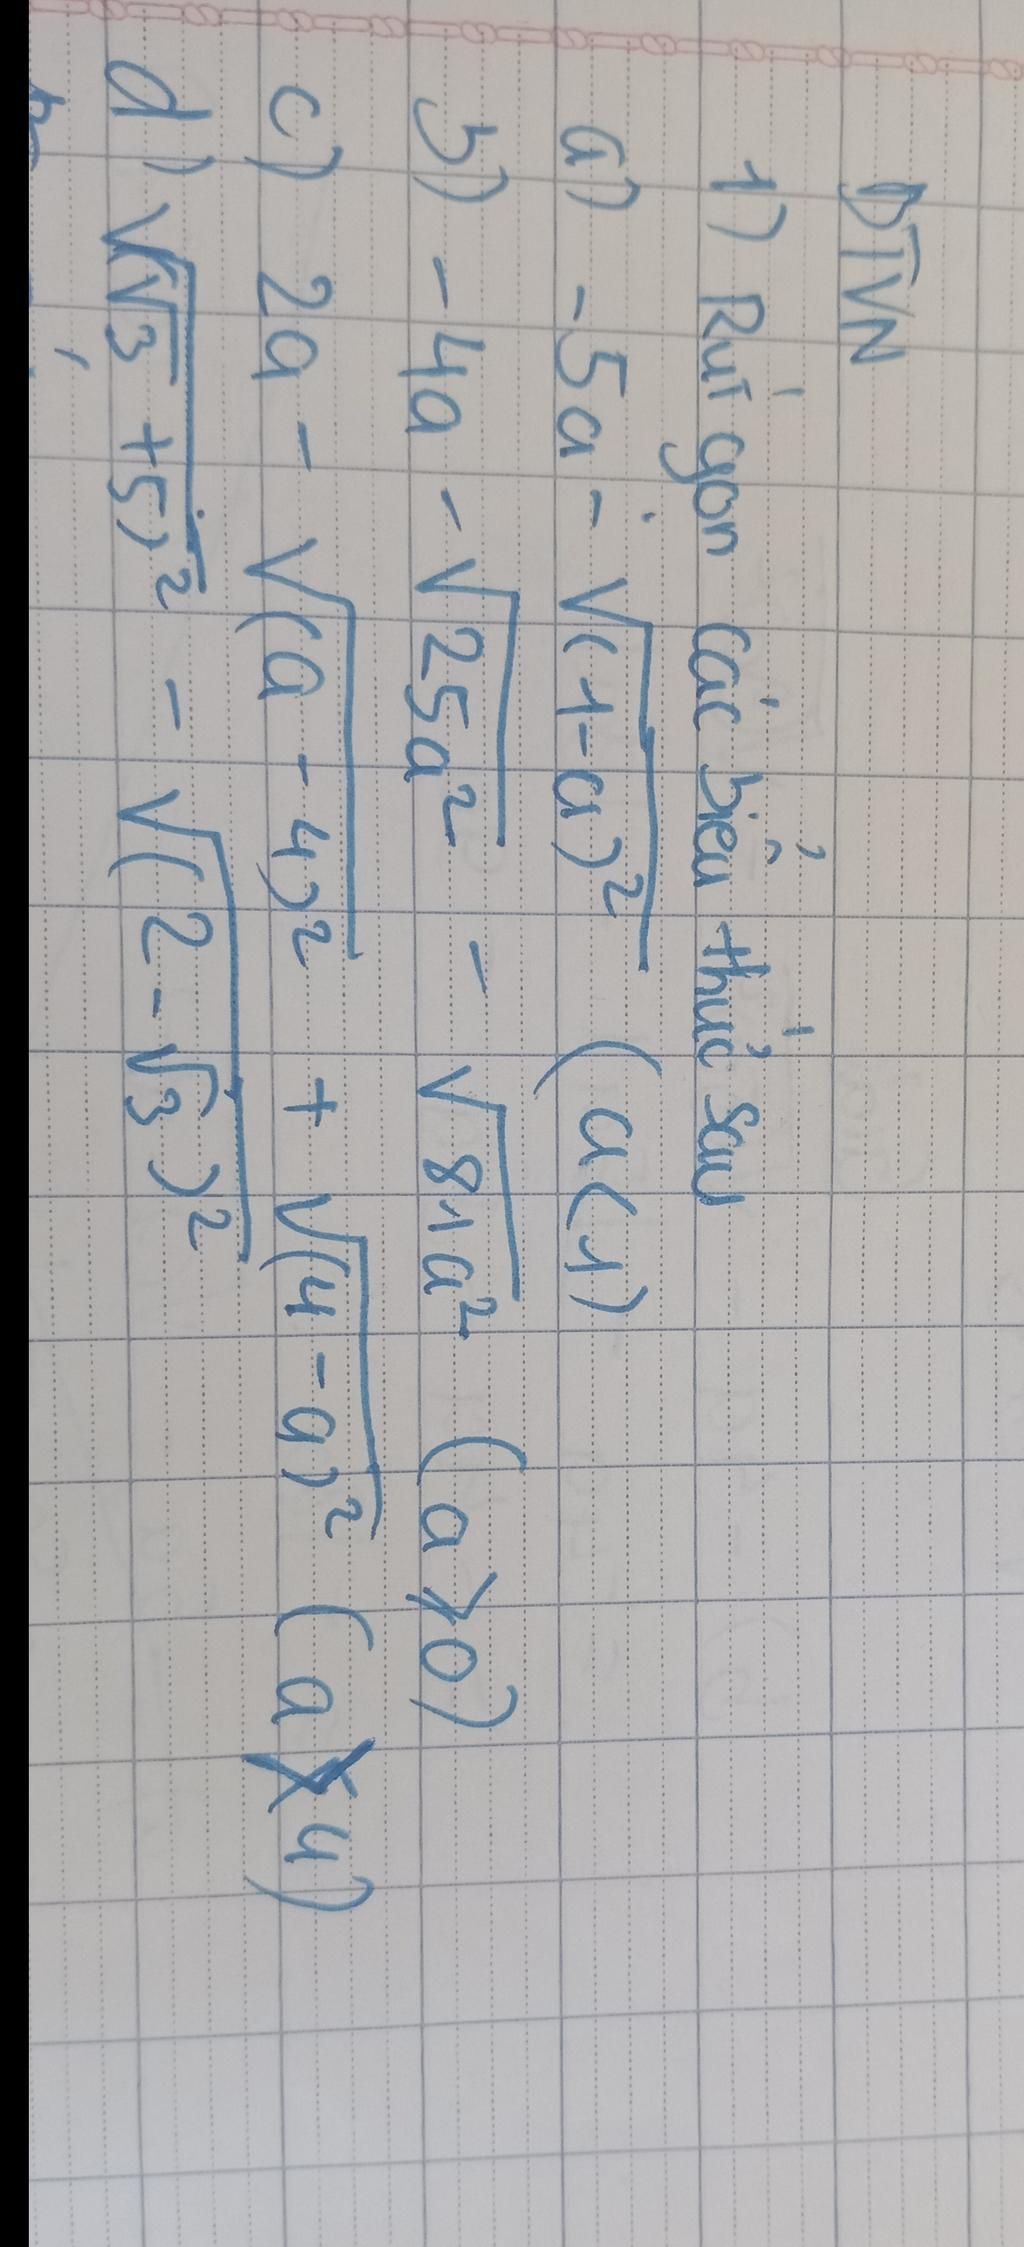 BTVN
1) Rút gọn các biểu thức sau
a) -5a - √(1-a)² (a<1)
b) -4a - √25a² - √81a² (a⩾0)
c) 2a - √(a-4)² + √(4-a)² (a 4)
d) √(√3+5)² - √(2-√3)²